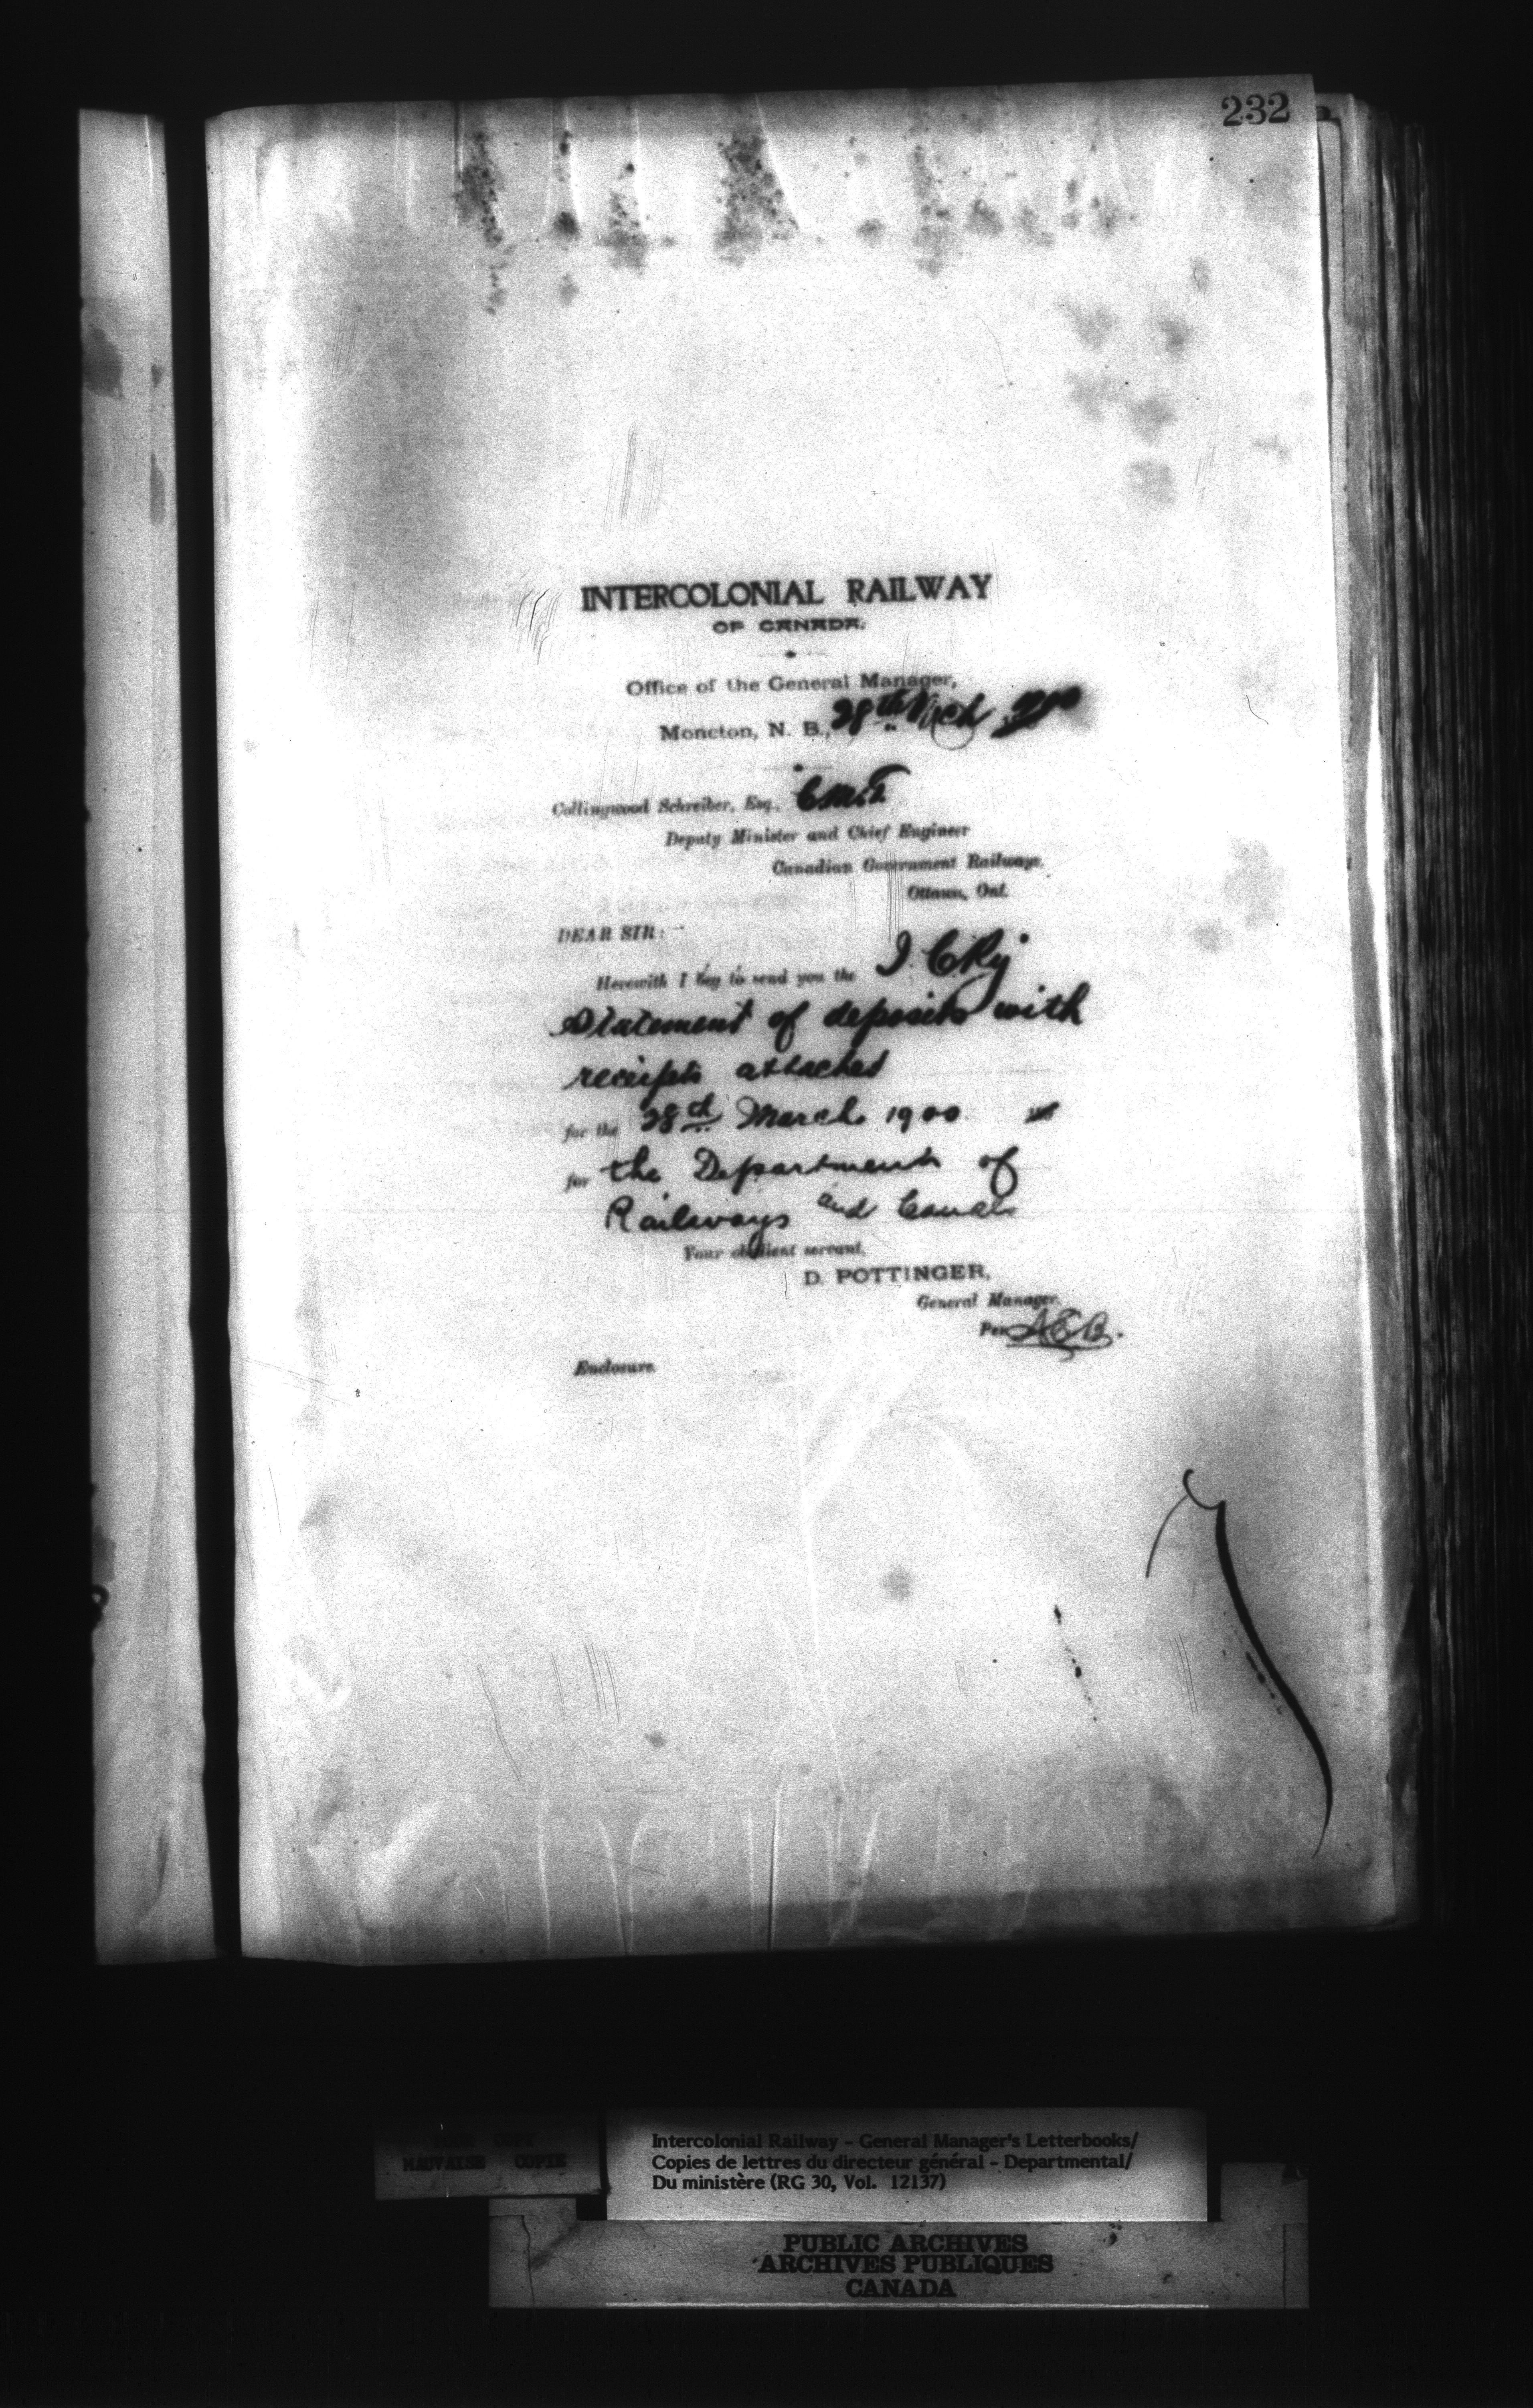 232
INTERCOLONIAL RAILWAY
OF CANADA.
Office of the General Manager,
Moncton, N. B., 28th Mch 1900
Collingwood Schreiber, Esq., C.M.G.
Deputy Minister and Chief Engineer
Canadian Government Railways,
Ottawa, Ont.
DEAR SIR:
Herewith I beg to send you the I. C. Ry.
Statement of deposits with
receipts attached
for the 28th March 1900
for the Department of
Railways and Canals
Your obedient servant,
D. POTTINGER,
General Manager.
Per A E B.
Enclosure.
POOR COPY
MAUVAISE COPIE
Intercolonial Railway - General Manager's Letterbooks/
Copies de lettres du directeur général - Departmental/
Du ministère (RG 30, Vol. 12137)
PUBLIC ARCHIVES
ARCHIVES PUBLIQUES
CANADA